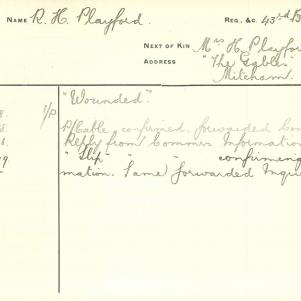 NAME R. H. Playford. REG., &C. 43rd B
NEXT OF KIN Mrs H. Playfor
ADDRESS "The Gables"
Mitcham.
8. 1/P "Wounded."
P/Cable confirmed. forwarded
Reply from Commrs. Information
9 "Slip" " " confirming
mation. Same forwarded Inqui